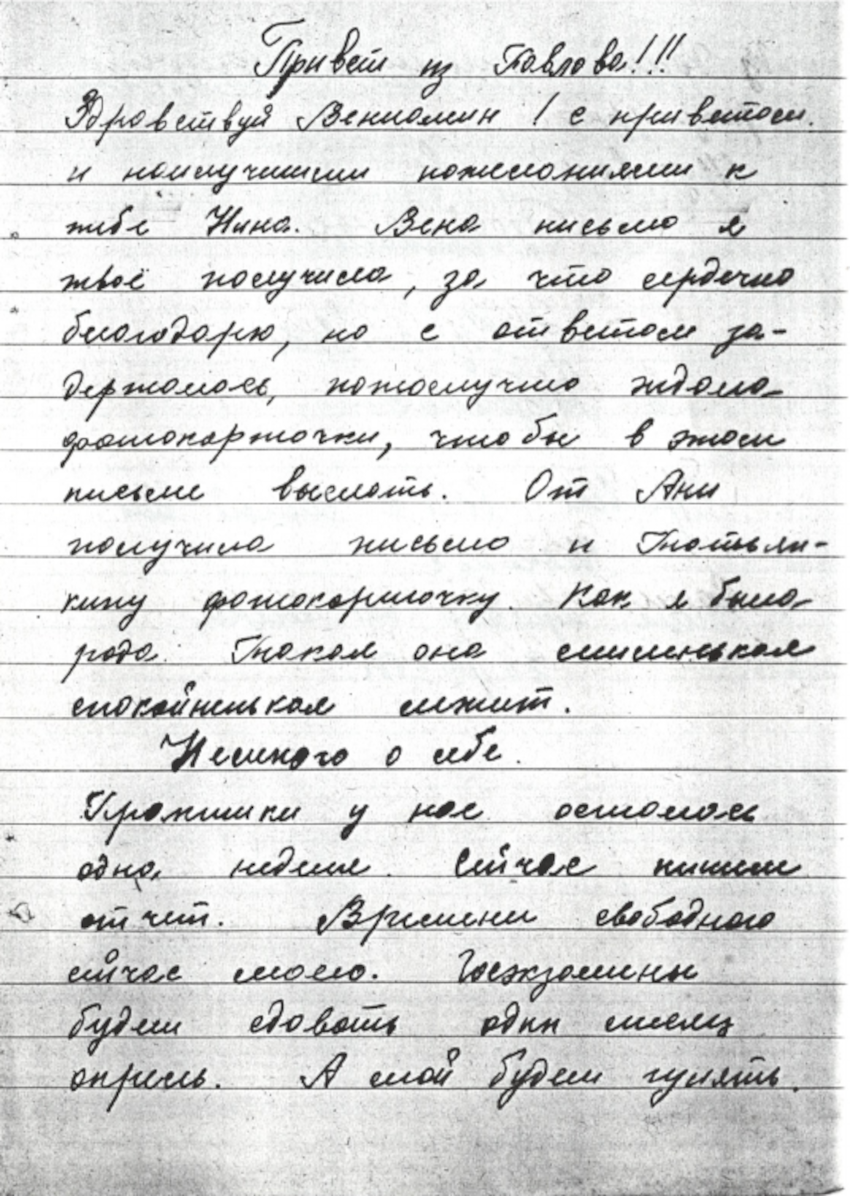 Привет из Павлова!!!
Здравствуй Вениамин! с приветом
и наилучшими пожеланиями к
тебе Нина. Вена письмо я
твоё получила, за что сердечно
благодарю, но с ответом за-
держалась, потомучто ждала
фотокарточки, чтобы в этом
письме выслать. От Ани
получила письмо и
фотокарточку. Как я была
рада. Такая она миленькая
спокойненькая лежит.
Немного о себе.
у нас осталось
одна неделя. Сейчас пишем
отчет. Времени свободного
сейчас мало. Госэкзамены
будем сдавать один месяц
апрель. А май будем гулять.